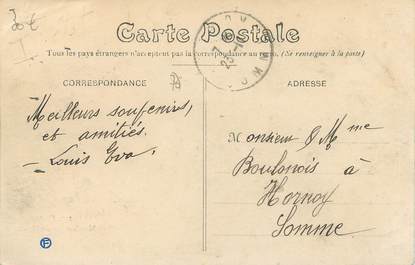 Carte Postale
Tous les pays étrangers n'acceptent pas la correspondance au recto. (Se renseigner à la poste)
CORRESPONDANCE
ADRESSE
Meilleurs souvenirs,
et amitiés.
Louis Eva
Monsieur & Mme
Boulonois à
Hornoy
Somme